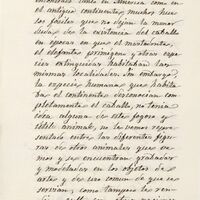 encontrado tanto en America como en
el antiguo continente, muchos hue-
sos fosiles que no dejan la menor
duda de la existencia del caballo
en epocas en que el mastodonte,
el elefante primigenio y otras espe-
cies extinguidas habitaban las
mismas localidades. Sin embargo,
la especie humana que habita-
ba el continente desconocia com-
pletamente el caballo, no tenia
idea alguna de este fogoso y
util animal, no lo hemos repre-
sentado entre las diferentes figu-
ras de otros animales que ve-
mos y se encuentran grabadas
y modeladas en los objetos de
arte y de uso comun de que se
servian; como tampoco la ven-